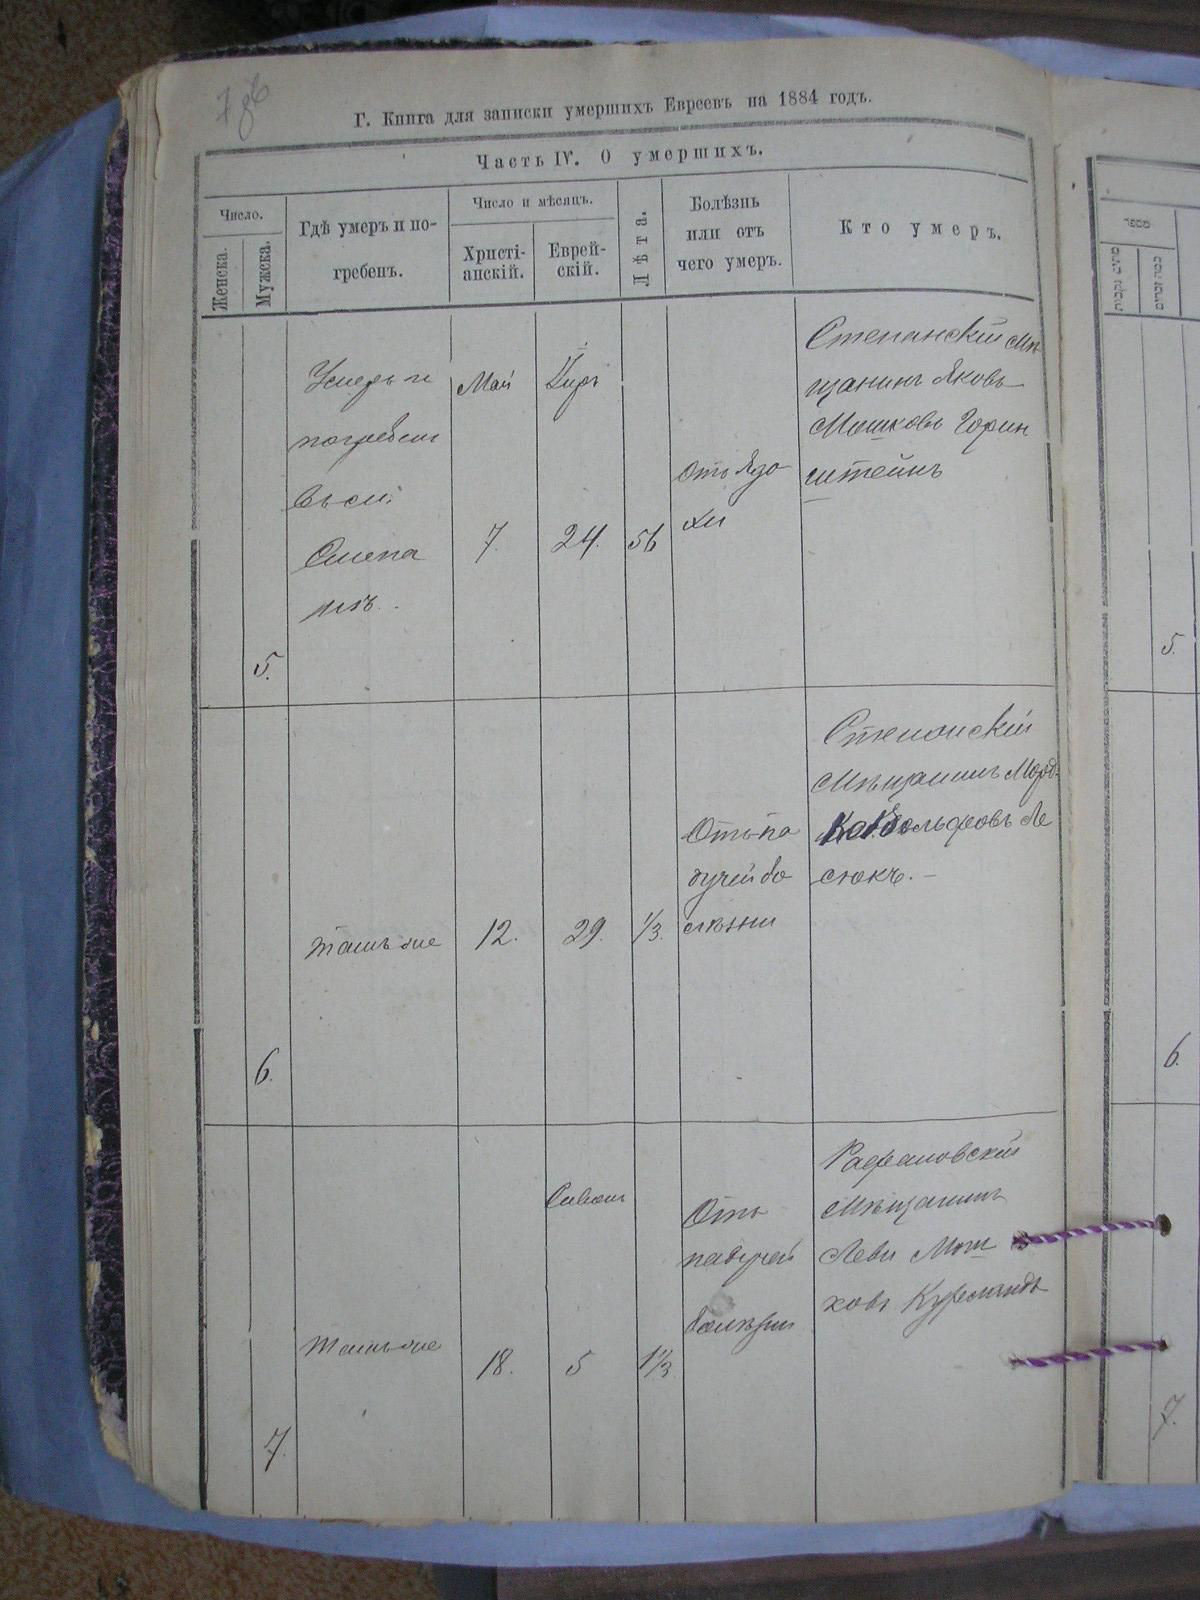 Г. Книга для записки умершихъ Евреевъ на 1884 годъ.
Часть IV. О умершихъ.
Число.
Женска.
Мужска.
Гдѣ умеръ и по-
гребенъ.
Число и мѣсяцъ.
Христі-
анскій.
Еврей-
скій.
Лѣта.
Болѣзнь
или отъ
чего умеръ.
Кто умеръ.
5.
Умеръ и
погребенъ
въ м:
Степа
нѣ.
Май
7.
24.
56
Степанскій мѣ
щанинъ Яковъ
Мошковъ Горин
штейнъ
6.
тамъ же
12.
29.
1/3.
Отъ па
дучей бо
лѣзни
Степанскій
Мѣщанинъ Морд
Вольфовъ Ле
сюкъ.
7.
тамъ же
18.
Сиванъ
5
1 1/3
Отъ
падучей
болѣзни
Рафаловскій
Мѣщанинъ
Леви Мош
ковъ
5.
6.
7.